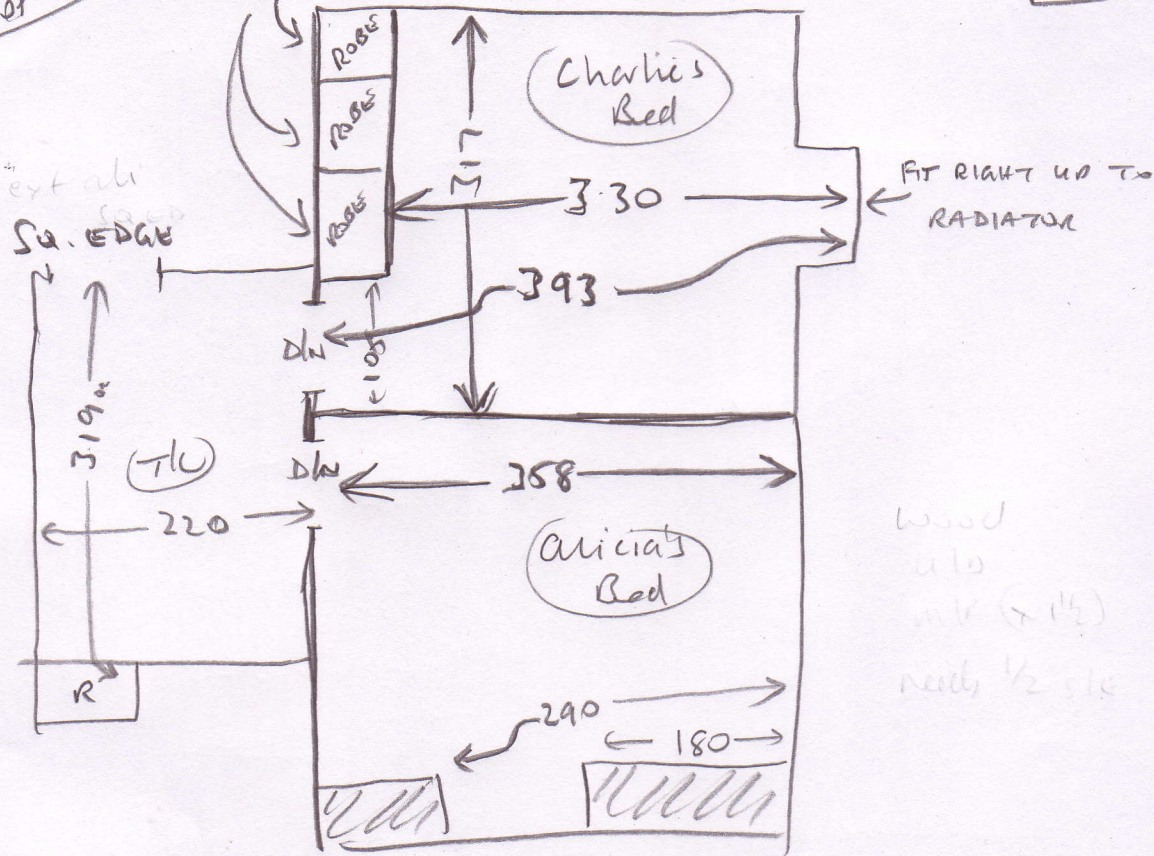 ROBE
ROBE
ROBE
Charlie's
Bed
317
3.30
FIT RIGHT UP TO
RADIATOR
SQ. EDGE
393
D/N
105
319
T/L
D/N
368
220
Alicia's
Bed
wood
needs 1/2
R
290
180